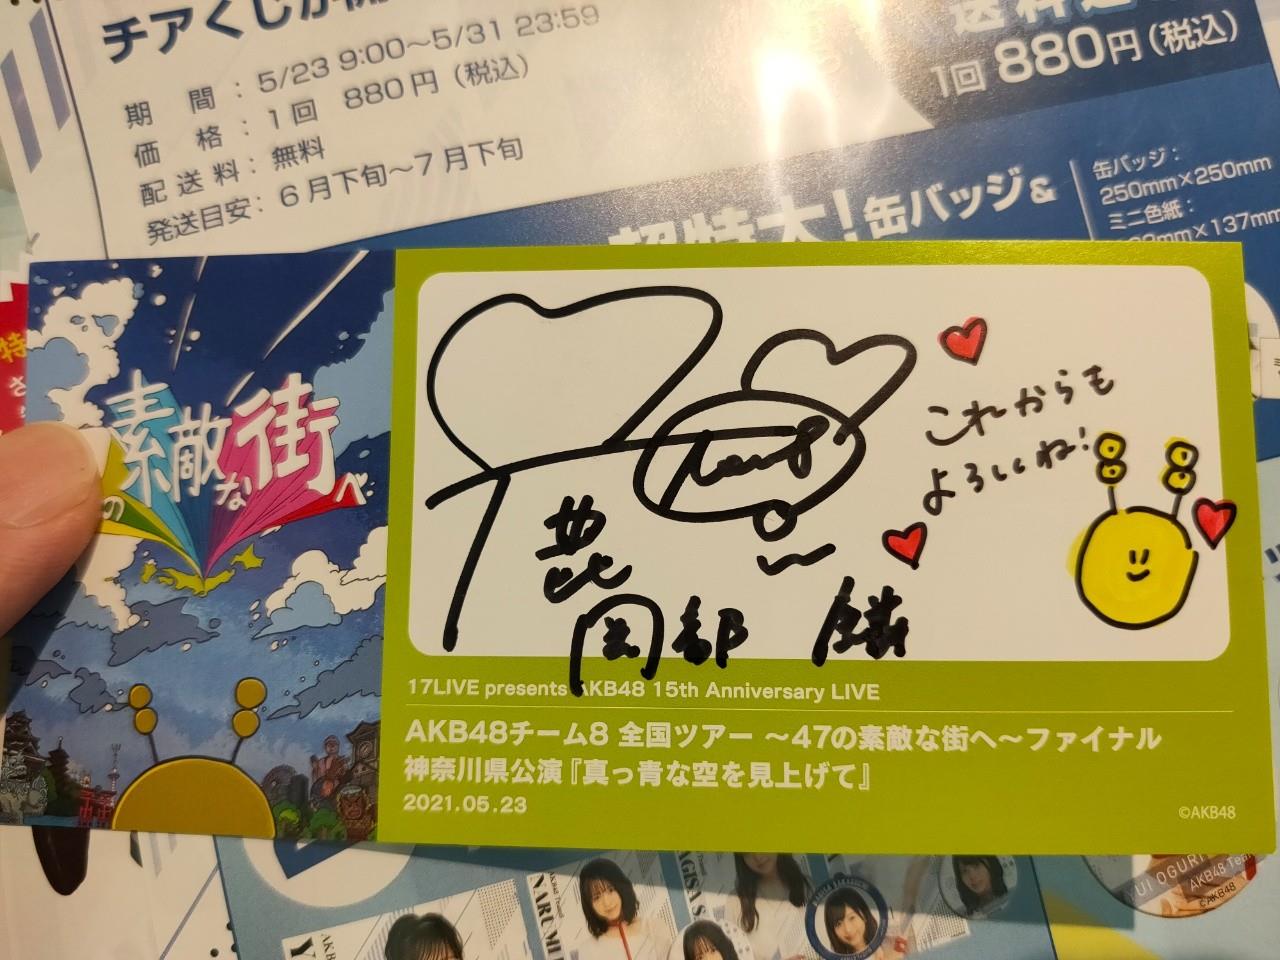 チアくじが
期間：5/23 9:00～5/31 23:59
価格：1回 880円（税込）
配送料：無料
発送目安：6月下旬～7月下旬
1回 880円（税込）
超特大！缶バッジ&
缶バッジ：
250mm×250mm
ミニ色紙：
mm×137mm
の素敵な街へ
team8
これからも
よろしくね！
岡部 麟
17LIVE presents AKB48 15th Anniversary LIVE
AKB48チーム8 全国ツアー ～47の素敵な街へ～ファイナル
神奈川県公演『真っ青な空を見上げて』
2021.05.23
©AKB48
NARUMI
AKB48 Team
©AKB48